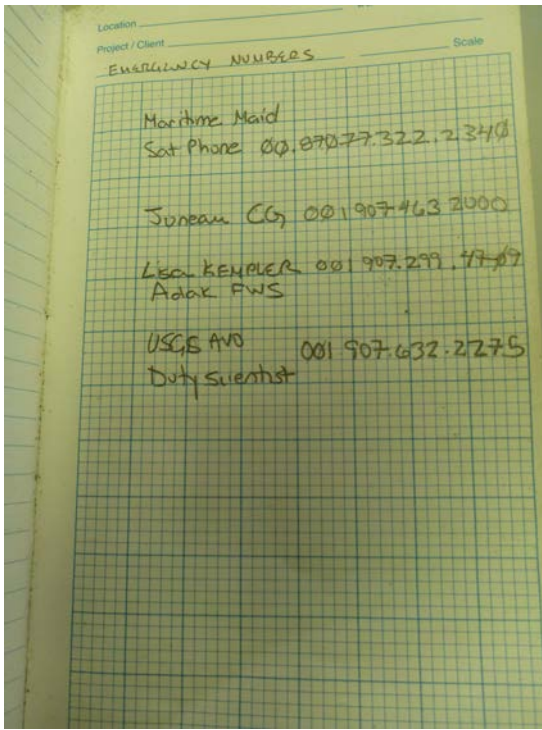 Location
Project / Client
Scale
EMERGENCY NUMBERS
Maritime Maid
Sat Phone 00.87077.322.2340
Juneau CG 001 907 463 2000
Lisa KEMPLER 001 907.299.4709
Adak FWS
USGS AVO 001 907.632.2275
Duty Scientist